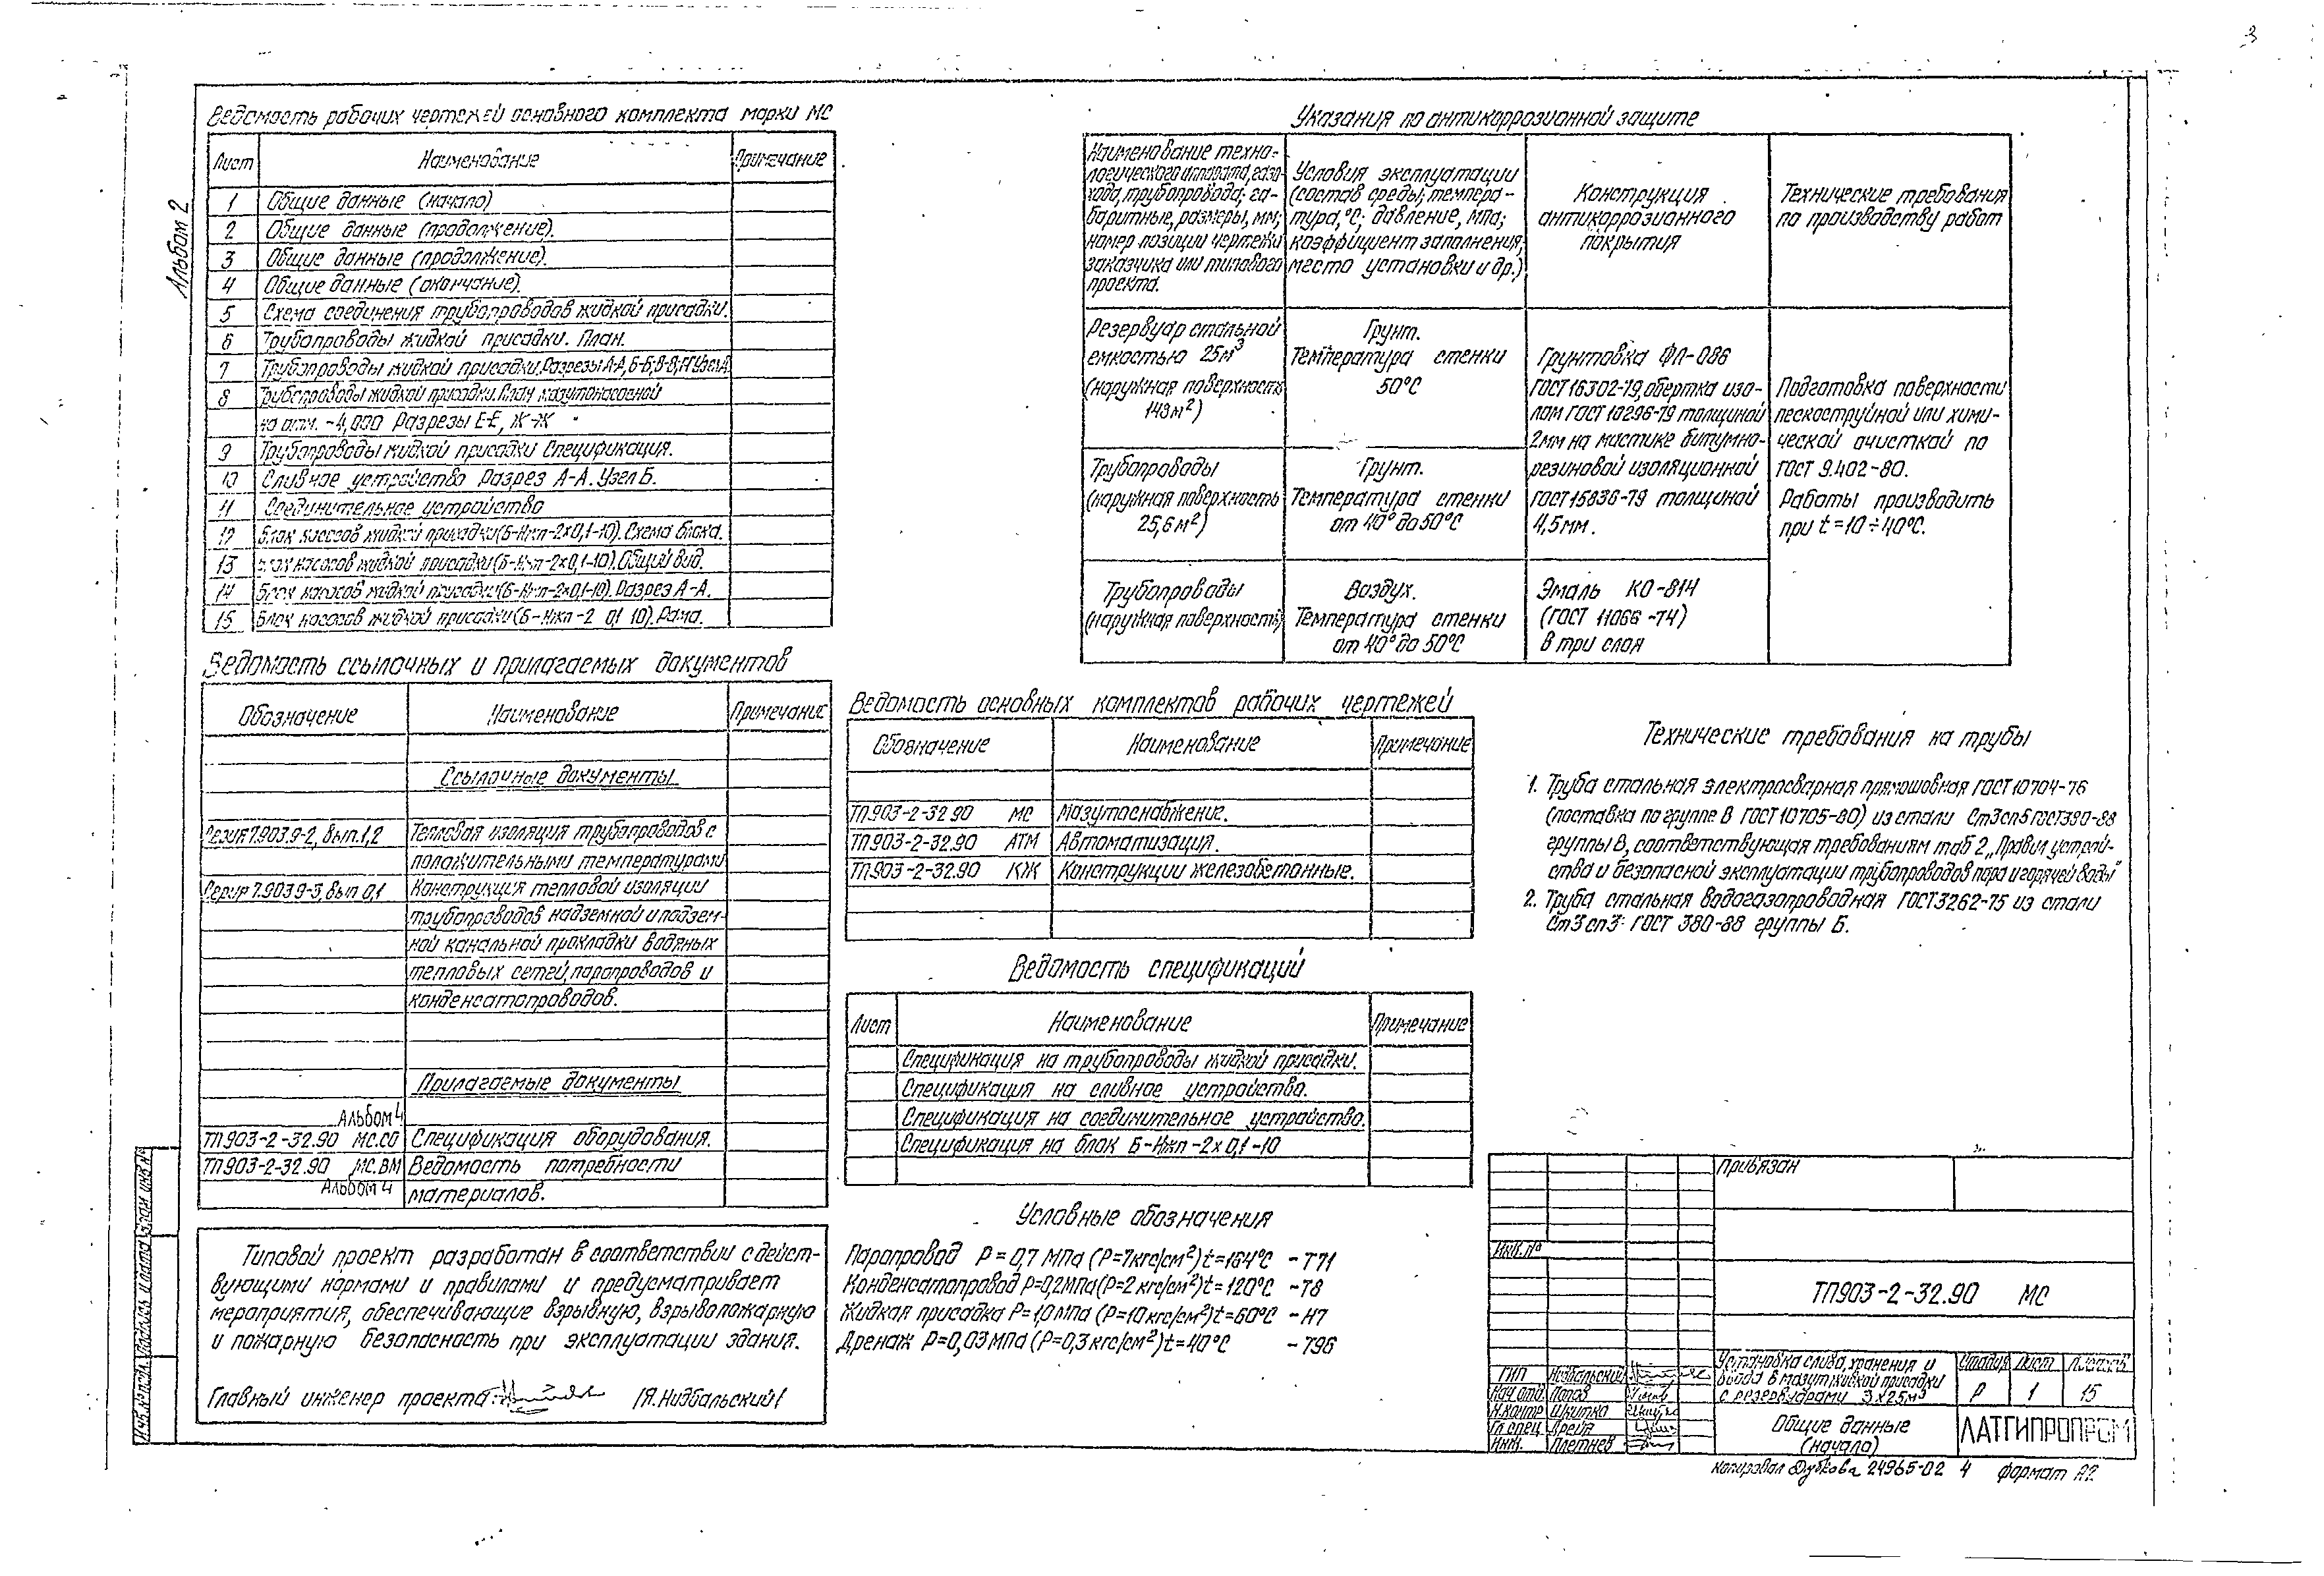 3
Альбом 2
Ведомость рабочих чертежей основного комплекта марки МС
Лист Наименование Примечание
1 Общие данные (начало)
2 Общие данные (продолжение).
3 Общие данные (продолжение).
4 Общие данные (окончание).
5 Схема соединения трубопроводов жидкой присадки.
6 Трубопроводы жидкой присадки. План.
7 Трубопроводы жидкой присадки. Разрезы А-А, Б-Б, В-В, Г-Г Узел А
8 Трубопроводы жидкой присадки. План мазутонасосной
на отм. -4,000 Разрезы Е-Е, Ж-Ж
9 Трубопроводы жидкой присадки Спецификация.
10 Сливное устройство Разрез А-А. Узел Б.
11 Соединительное устройство
12 Блок насосов жидкой присадки (Б-Нжп-2х0,1-10). Схема блока.
13 Блок насосов жидкой присадки (Б-Нжп-2х0,1-10). Общий вид.
14 Блок насосов жидкой присадки (Б-Нжп-2х0,1-10). Разрез А-А.
15 Блок насосов жидкой присадки (Б-Нжп-2 0,1 10). Рама.
Ведомость ссылочных и прилагаемых документов
Обозначение Наименование Примечание
Ссылочные документы
Серия 7.903.9-2, вып.1,2 Тепловая изоляция трубопроводов с
положительными температурами
Серия 7.903.9-3, вып 0,1 Конструкция тепловой изоляции
трубопроводов надземной и подзем-
ной канальной прокладки водяных
тепловых сетей, паропроводов и
конденсатопроводов.
Прилагаемые документы
Альбом 4
ТП903-2-32.90 МС.СО Спецификация оборудования.
ТП903-2-32.90 МС.ВМ Ведомость потребности
Альбом 4 материалов.
Типовой проект разработан в соответствии с дейст-
вующими нормами и правилами и предусматривает
мероприятия, обеспечивающие взрывную, взрывопожарную
и пожарную безопасность при эксплуатации здания.
Главный инженер проекта: /Я.Нидбальский/
Указания по антикоррозионной защите
Наименование техно-
логического аппарата, газо
хода, трубопровода; га-
баритные, размеры, мм;
номер позиции чертежа
заказчика или типового
проекта.
Условия эксплуатации
(состав среды; темпера-
тура, °С; давление, МПа;
коэффициент заполнения,
место установки и др.)
Конструкция
антикоррозионного
покрытия
Технические требования
по производству работ
Резервуар стальной
емкостью 25м³
(наружная поверхность
143м²)
Грунт.
Температура стенки
50°С
Грунтовка ФЛ-086
ГОСТ 16302-79, обертка изо-
лом ГОСТ 10296-79 толщиной
2мм на мастике битумно-
резиновой изоляционной
ГОСТ 15836-79 толщиной
4,5мм.
Подготовка поверхности
пескоструйной или хими-
ческой очисткой по
ГОСТ 9.402-80.
Работы производить
при t=10÷40°С.
Трубопроводы
(наружная поверхность
25,6м²)
Грунт.
Температура стенки
от 40° до 50°С
Трубопроводы
(наружная поверхность)
Воздух.
Температура стенки
от 40° до 50°С
Эмаль КО-814
(ГОСТ 11066-74)
в три слоя
Ведомость основных комплектов рабочих чертежей
Обозначение Наименование Примечание
ТП903-2-32.90 МС Мазутоснабжение.
ТП903-2-32.90 АТМ Автоматизация.
ТП903-2-32.90 КЖ Конструкции железобетонные.
Ведомость спецификаций
Лист Наименование Примечание
Спецификация на трубопроводы жидкой присадки.
Спецификация на сливное устройство.
Спецификация на соединительное устройство.
Спецификация на блок Б-Нжп-2х0,1-10
Условные обозначения
Паропровод Р=0,7 МПа (Р=7кгс/см²) t=164°С -Т71
Конденсатопровод Р=0,2МПа (Р=2 кгс/см²) t=120°С -Т8
Жидкая присадка Р=1,0 МПа (Р=10кгс/см²) t=60°С -Н7
Дренаж Р=0,03МПа (Р=0,3кгс/см²) t=40°С -Т96
Технические требования на трубы
1. Труба стальная электросварная прямошовная ГОСТ 10704-76
(поставка по группе В ГОСТ 10705-80) из стали Ст3сп5 ГОСТ380-88
группы В, соответствующая требованиям таб 2 „Правил устрой-
ства и безопасной эксплуатации трубопроводов пара и горячей воды"
2. Труба стальная водогазопроводная ГОСТ3262-75 из стали
Ст3сп3 ГОСТ 380-88 группы Б.
Привязан
Инв.№
ТП903-2-32.90 МС
ГИП Нидбальский
Нач.отд. Попов
Н.контр Шкитко
Гл.спец
Инж. Плетнев
Установка слива, хранения и
ввода в мазут жидкой присадки
с резервуарами 3х25м³
Стадия Лист Листов
Р 1 15
Общие данные
(начало)
ЛАТГИПРОПРОМ
Инв.№ подл. Подпись и дата Взам инв №
Копировал Дубкова 24965-02 4 формат А2